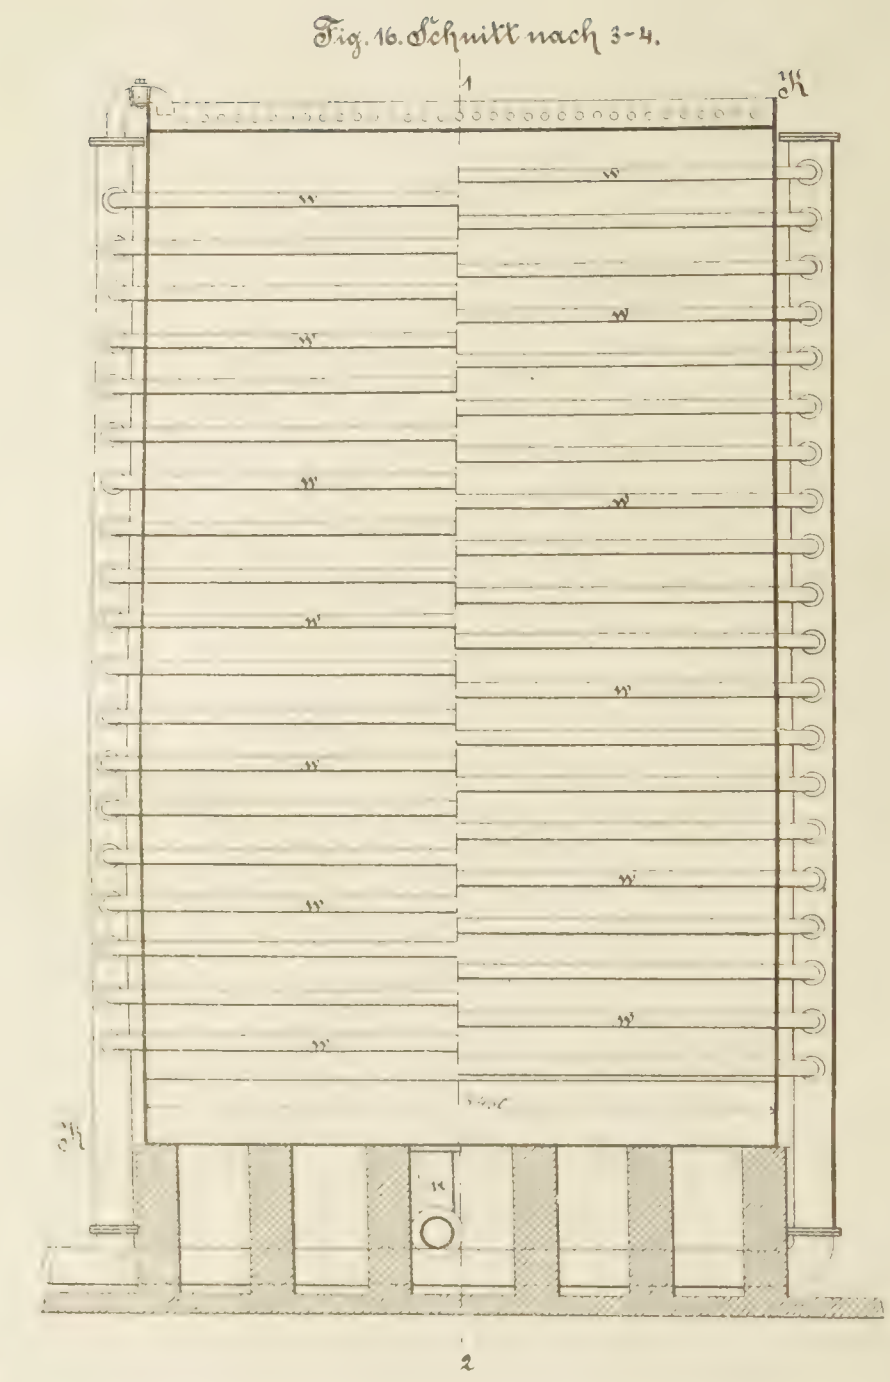 Fig. 16. Schnitt nach 3-4.
1
K
w
w
w
w
w
w
w
w
w
w
w
w
w
K
2